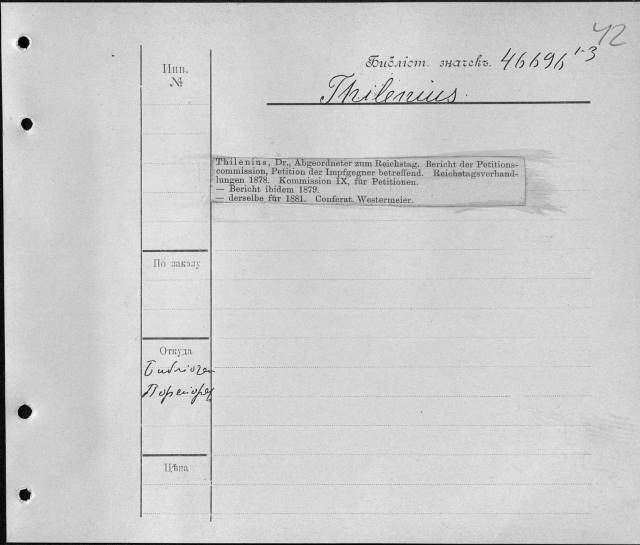 42
Инв.
№
Библіот. значекъ. 46696 1-3
Thilenius.
Thilenius, Dr., Abgeordneter zum Reichstag. Bericht der Petitions-
commission, Petition der Impfgegner betreffend. Reichstagsverhand-
lungen 1878. Kommission IX, für Petitionen.
— Bericht ibidem 1879.
— derselbe für 1881. Conferat. Westermeier.
По заказу
Откуда
Цѣна